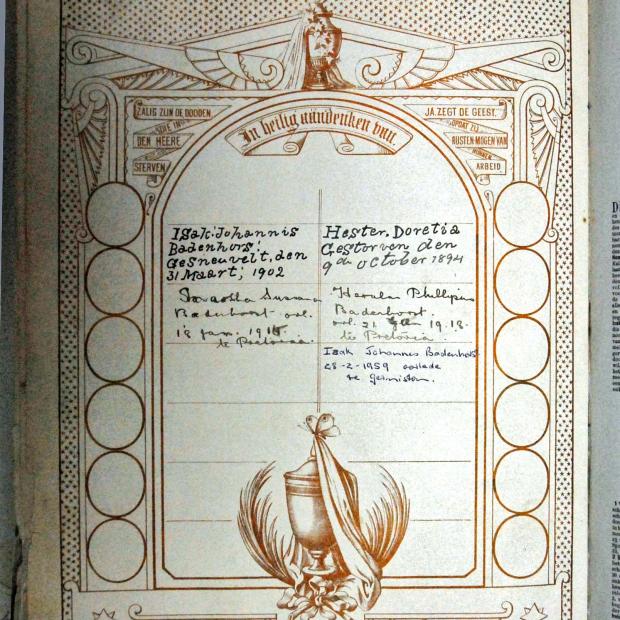 ZALIG ZIJN DE DOODEN,
DIE IN
DEN HEERE
STERVEN
JA, ZEGT DE GEEST,
OPDAT ZIJ
RUSTEN MOGEN VAN
HUNNEN
ARBEID
In heilig aandenken van.
Isak. Johannis
Badenhors
Gesneuvelt, den
31 Maart, 1902
Hester. Doretia
Gestorven den
9de October 1894
Susanna
Badenhorst ovl.
18 Jan. 1915
te Pretoria.
Hermlen Phillipus
Badenhorst.
ovl. 21 1918.
te Pretoria
Izak Johannes Badenhorst
28-2-1959 oorlede
te Germiston.